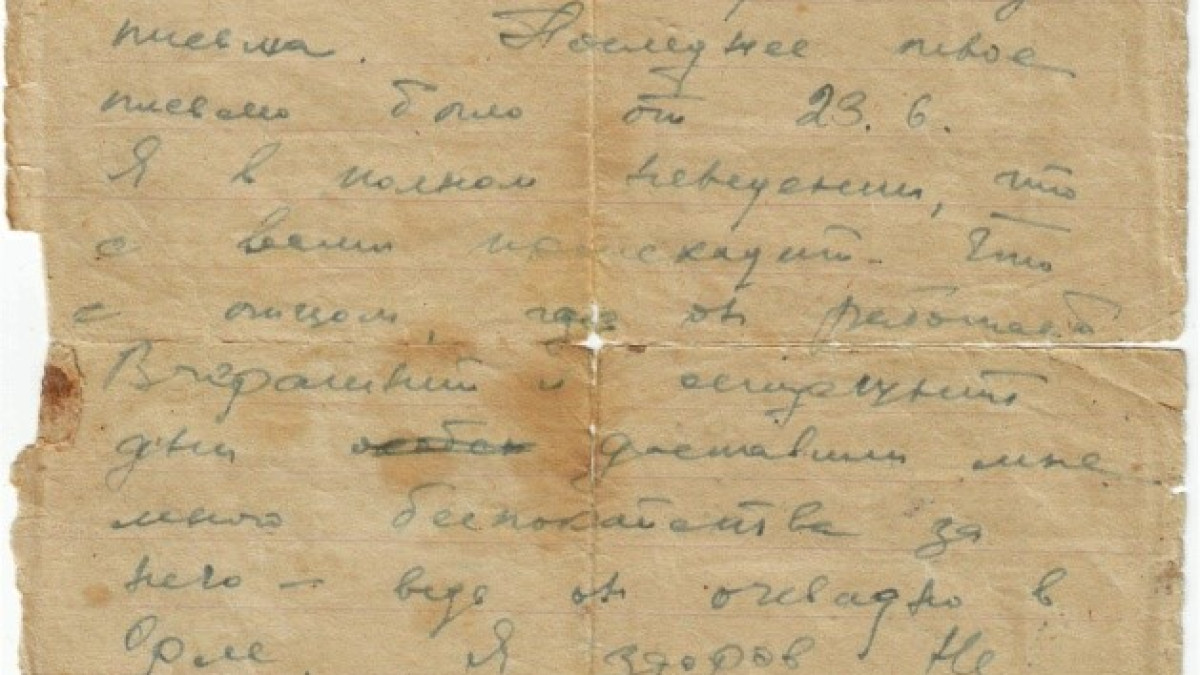 письма. Последнее твое
письмо было от 23.6.
Я в полном неведении, что
с вами происходит. Что
с отцом, где он работает
Вчерашний и сегодняшний
дни особен доставили мне
много беспокойства за
него — ведь он очевидно в
Орле. Я здоров Не